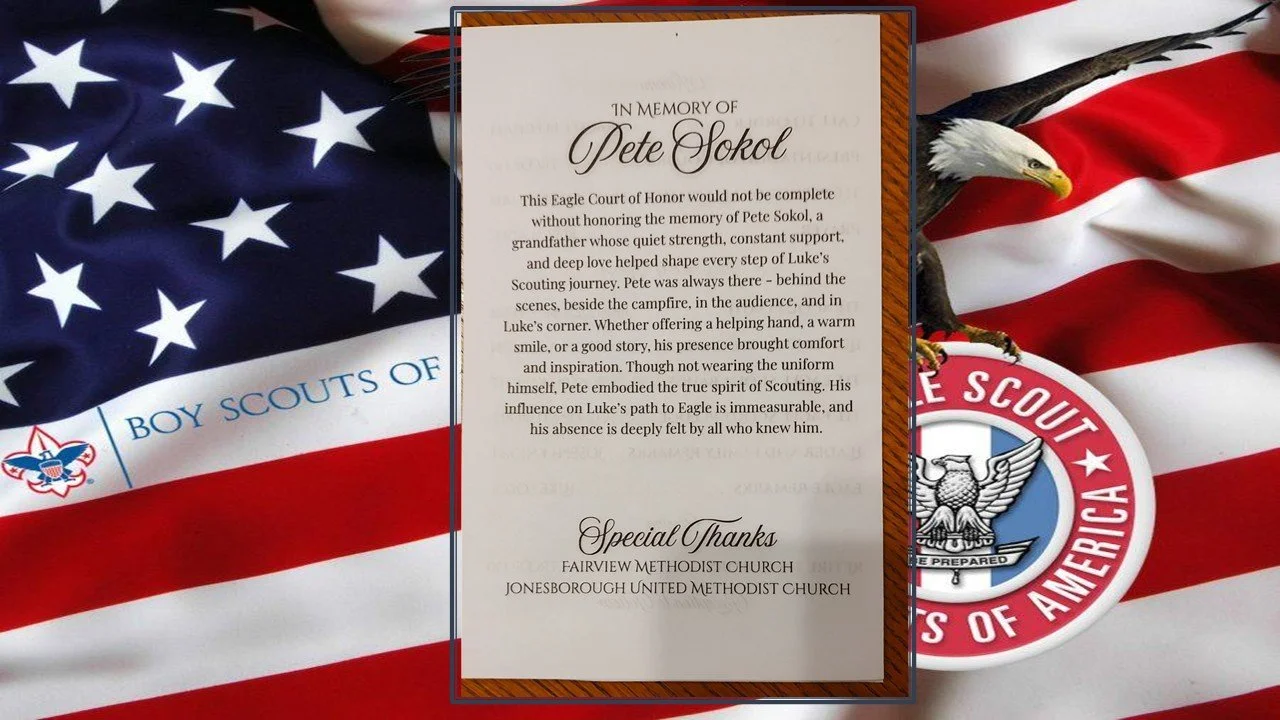 IN MEMORY OF
Pete Sokol
This Eagle Court of Honor would not be complete
without honoring the memory of Pete Sokol, a
grandfather whose quiet strength, constant support,
and deep love helped shape every step of Luke's
Scouting journey. Pete was always there - behind the
scenes, beside the campfire, in the audience, and in
Luke's corner. Whether offering a helping hand, a warm
smile, or a good story, his presence brought comfort
and inspiration. Though not wearing the uniform
himself, Pete embodied the true spirit of Scouting. His
influence on Luke's path to Eagle is immeasurable, and
his absence is deeply felt by all who knew him.
Special Thanks
FAIRVIEW METHODIST CHURCH
JONESBOROUGH UNITED METHODIST CHURCH
BOY SCOUTS OF
LE SCOUT
TS OF AMERICA
BE PREPARED